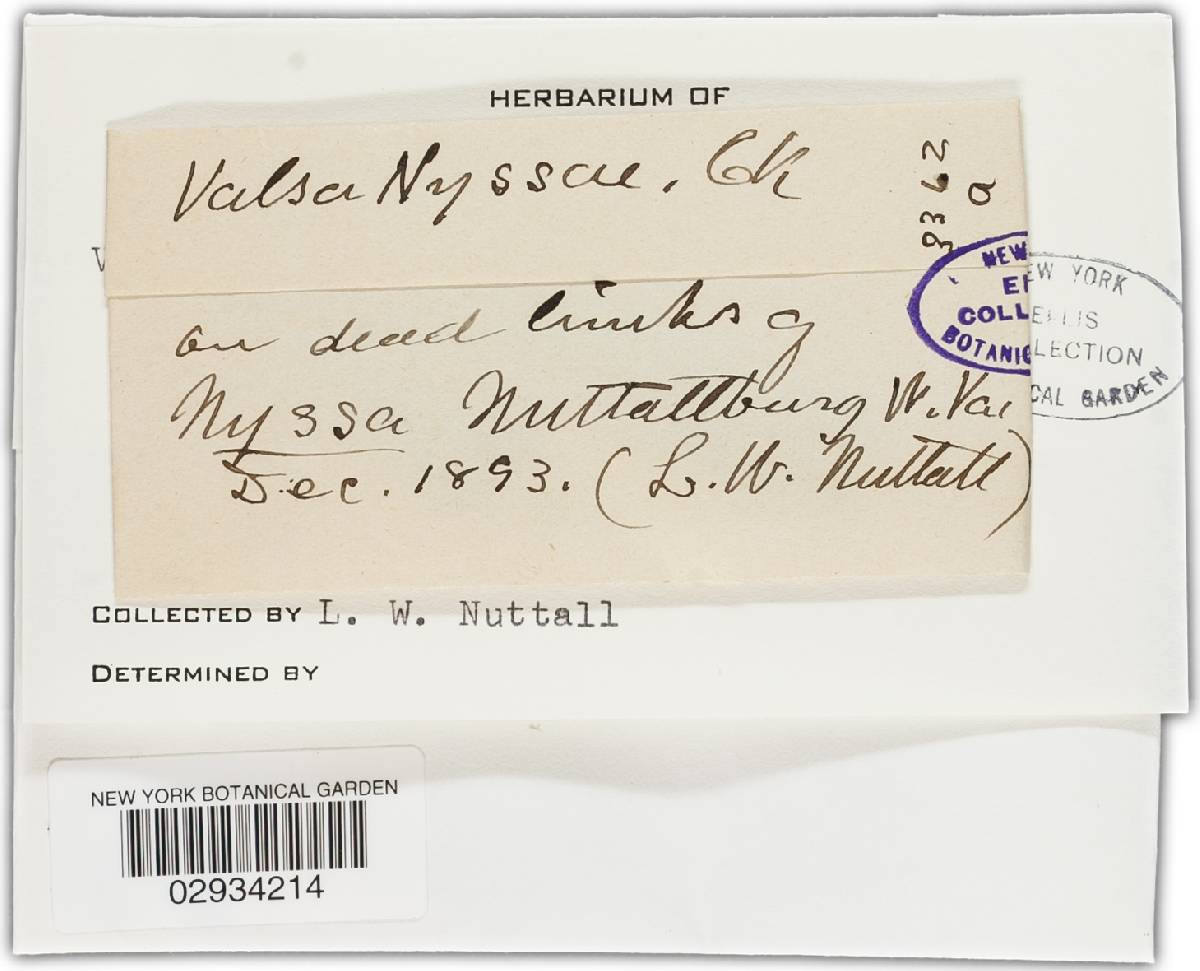 HERBARIUM OF
Valsa Nyssae, Ck
9362
a
V
on dead limbs of
Nyssa Nuttallburg W. Va.
Dec. 1893. (L. W. Nuttall)
NEW
EL
COLL
BOTANIC
EW YORK
ELLIS
LECTION
CAL GARDEN
COLLECTED BY L. W. Nuttall
DETERMINED BY
NEW YORK BOTANICAL GARDEN
02934214